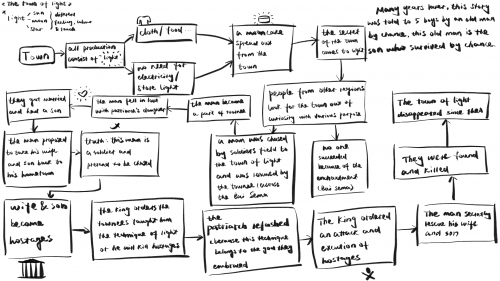 <The town of light>
light
sun
moon
star
different
feeling, value
& touch
Many years later, this story
was told to 5 boys by an old man
by chance, this old man is the
son who survived by chance.
Town
all production
consist of "light"
cloth/ food...
no need for
electricity/
store light
a man came
spread out
from the
town
the secret
of the town
comes to light
people from other regions
look for the town out of
curiosity with various purpose
no one
succeeded
because of the
enchantment
(Bai Sema)
a man was chased
by soldiers fled to
the town of light
and was saved by
the tunnel across
the Bai Sema
the man became
a part of town
the man fell in love
with patriarch's daughter
they got married
and had a son
the man proposed
to take his wife
and son back to
his hometown
truth: this man is
a soldier and
pretend to be chased
wife & son
become
hostages
The king orders the
townees taught him
the technique of light
or he will kill hostages
the
patriarch refushed
because this technique
belongs to the god they
embraced
The King ordered
an attack and
excution of
hostages
The man secretly
rescue his wife
and son
They were found
and killed
The town of light
disappeared since then